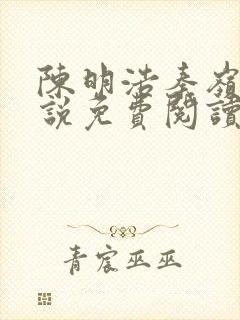 陳明浩秦嶺
說免費閱讀
青宸巫巫